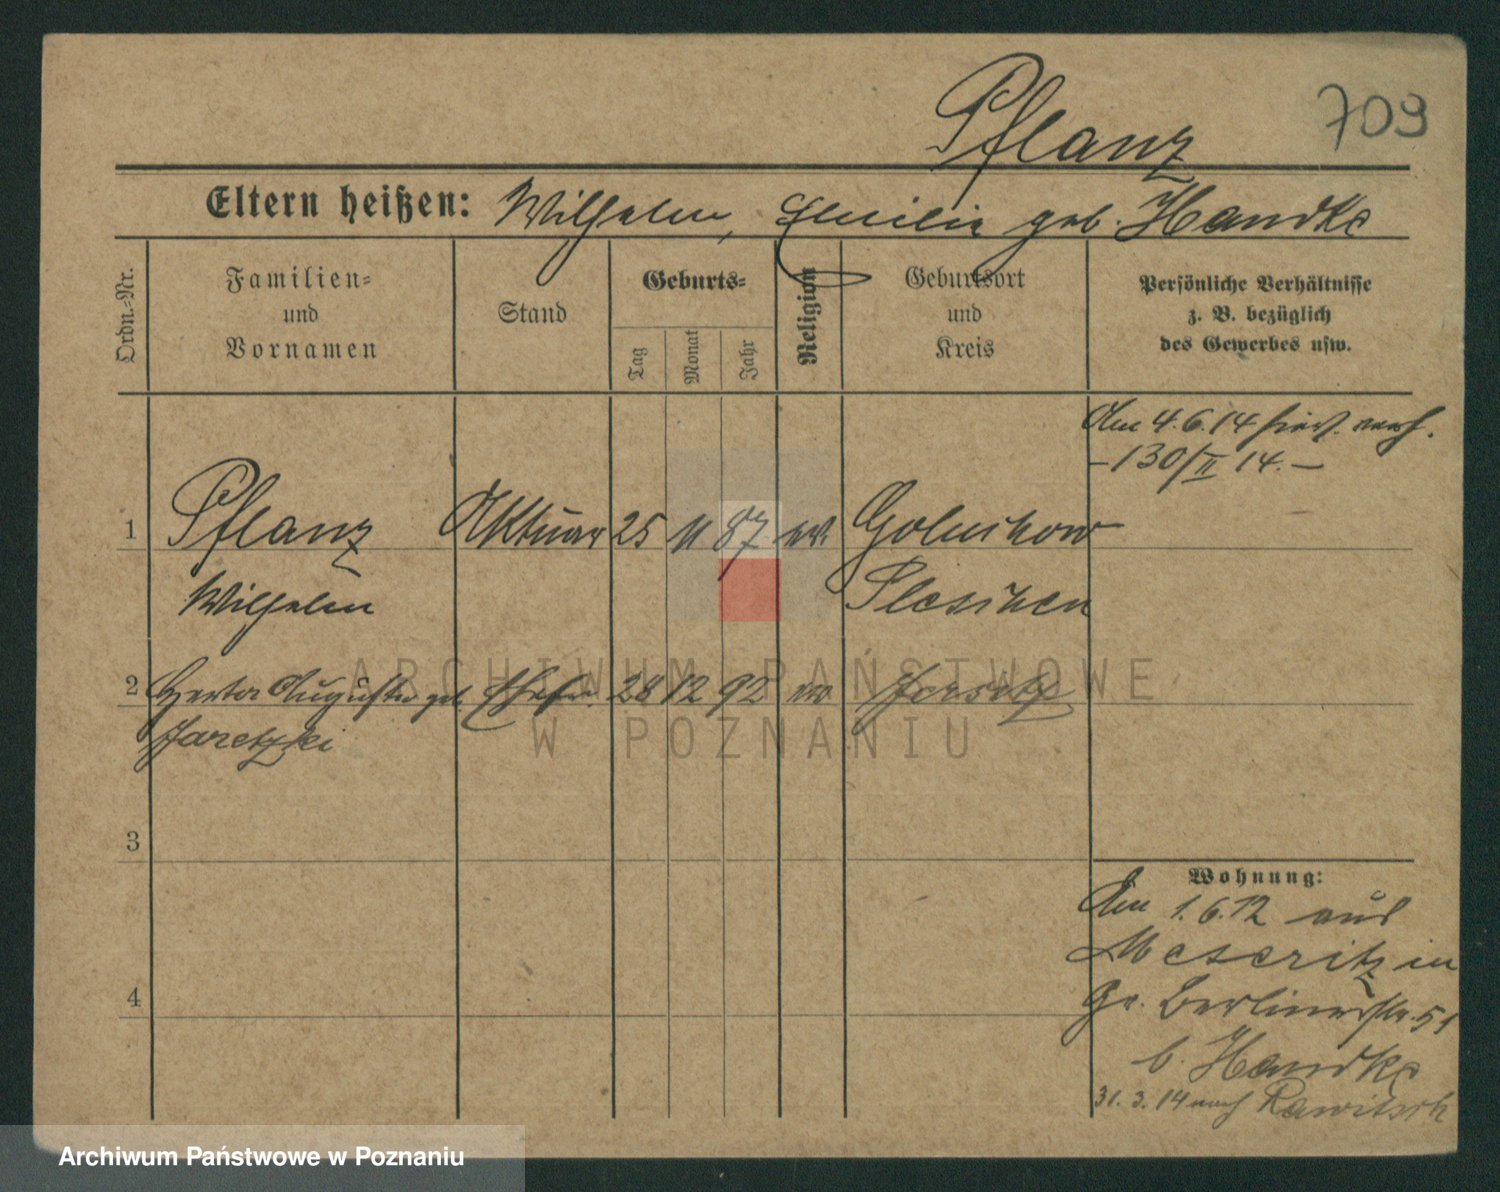 Pflanz
709
Eltern heißen: Wilhelm, Emilie geb. Handke
Ordn.=Nr.
Familien=
und
Vornamen
Stand
Geburts=
Tag
Monat
Jahr
Religion
Geburtsort
und
Kreis
Persönliche Verhältnisse
z. B. bezüglich
des Gewerbes usw.
Am 4.6.14 hier verh.
-130/II 14.-
1 Pflanz Aktuar 25 11 87. ev. Goluchow
Wilhelm Pleschen
2 Herta Auguste geb. Ehefr. 28 12 92
Jaretzki
3
4
Wohnung:
Am 1.6.12 aus
Meseritz in
Gr. Berlinerstr. 51
b. Handke
31. 3. 14 nach Rawitsch
ARCHIWUM PAŃSTWOWE
W POZNANIU
Archiwum Państwowe w Poznaniu